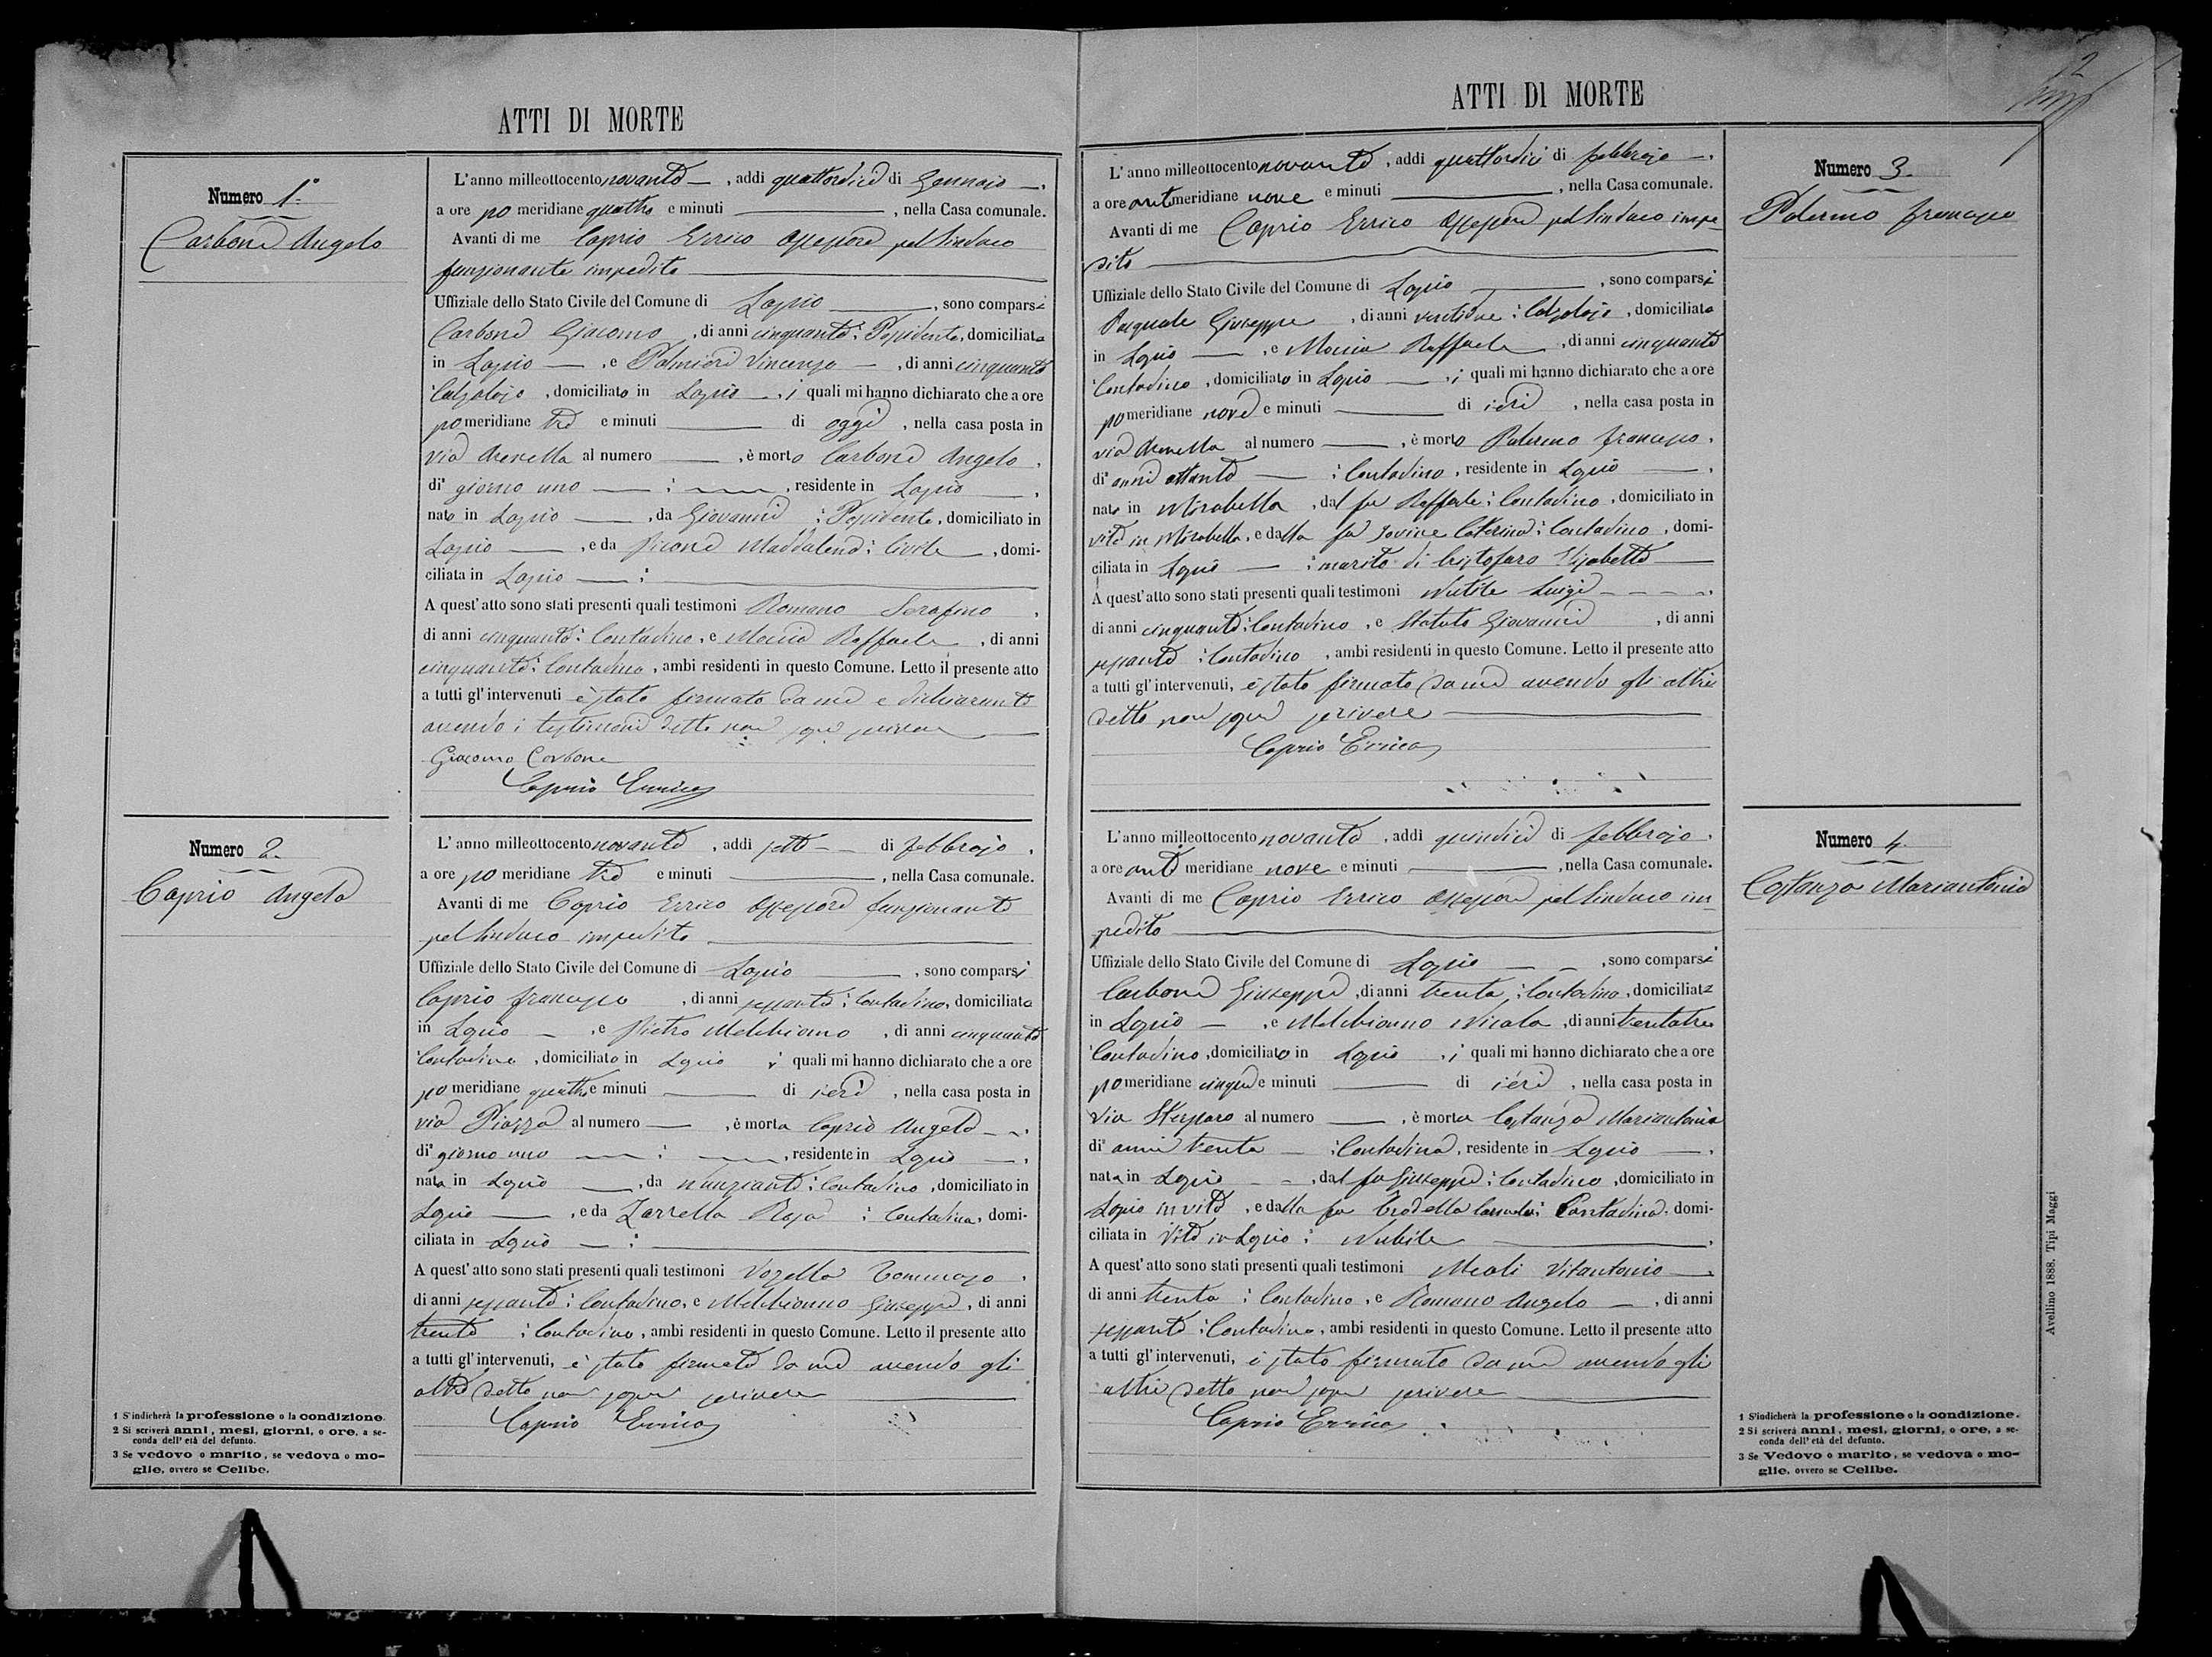 ATTI DI MORTE
Numero 1°
Carbone Angelo
L'anno milleottocento novanta, addì quattordici di Gennaio,
a ore po meridiane quattro e minuti, nella Casa comunale.
Avanti di me Caprio Errico Assessore pel Sindaco
funzionante impedito
Uffiziale dello Stato Civile del Comune di Lapio, sono comparsi
Carbone Giacomo, di anni cinquanta; Possidente, domiciliato
in Lapio, e Palmieri Vincenzo, di anni cinquanta
Calzolajo, domiciliato in Lapio, i quali mi hanno dichiarato che a ore
po meridiane tre e minuti di oggi, nella casa posta in
via Arenella al numero, è morto Carbone Angelo,
di giorno uno; , residente in Lapio,
nato in Lapio, da Giovanni; Possidente, domiciliato in
Lapio, e da Picone Maddalena; Civile, domi-
ciliata in Lapio;
A quest'atto sono stati presenti quali testimoni Romano Serafino,
di anni cinquanta; Contadino, e Moccia Raffaele, di anni
cinquanta; Contadino, ambi residenti in questo Comune. Letto il presente atto
a tutti gl'intervenuti è stato firmato da me e dichiarante
avendo i testimoni detto non saper scrivere
Giacomo Carbone
Caprio Errico
Numero 2.
Caprio Angela
L'anno milleottocento novanta, addì sette di febbrajo,
a ore po meridiane tre e minuti, nella Casa comunale.
Avanti di me Caprio Errico Assessore funzionante
pel Sindaco impedito
Uffiziale dello Stato Civile del Comune di Lapio, sono comparsi
Caprio Francesco, di anni sessanta; Contadino, domiciliato
in Lapio, e Pietro Melchionno, di anni cinquanta
Contadino, domiciliato in Lapio i quali mi hanno dichiarato che a ore
po meridiane quattro e minuti di ieri, nella casa posta in
via Piazza al numero, è morta Caprio Angela,
di giorno uno; , residente in Lapio,
nata in Lapio, da Nunziante; Contadino, domiciliato in
Lapio, e da Zarrella Rosa; Contadina, domi-
ciliata in Lapio;
A quest'atto sono stati presenti quali testimoni Vozella Tommaso,
di anni sessanta; Contadino, e Melchionno Giuseppe, di anni
trenta; Contadino, ambi residenti in questo Comune. Letto il presente atto
a tutti gl'intervenuti, è stato firmato da me avendo gli
altri detto non saper scrivere
Caprio Errico
1 S'indicherà la professione o la condizione.
2 Si scriverà anni, mesi, giorni, o ore, a se-
conda dell'età del defunto.
3 Se vedovo o marito, se vedova o mo-
glie, ovvero se Celibe.
ATTI DI MORTE
2
Numero 3.
Palermo Francesco
L'anno milleottocento novanta, addì quattordici di febbrajo,
a ore antmeridiane nove e minuti, nella Casa comunale.
Avanti di me Caprio Errico Assessore pel Sindaco impe-
dito
Uffiziale dello Stato Civile del Comune di Lapio, sono comparsi
Pasquale Giuseppe, di anni ventidue; Calzolajo, domiciliato
in Lapio, e Moccia Raffaele, di anni cinquanta
Contadino, domiciliato in Lapio, i quali mi hanno dichiarato che a ore
pomeridiane nove e minuti di ieri, nella casa posta in
via Arenella al numero, è morto Palermo Francesco,
di anni ottanta; Contadino, residente in Lapio,
nato in Mirabella, dal fu Raffaele; Contadino, domiciliato in
vita in Mirabella, e dalla fu Iovine Caterina; Contadina, domi-
ciliata in Lapio; marito di Cristofaro Elisabetta
A quest'atto sono stati presenti quali testimoni Nutile Luigi,
di anni cinquanta; Contadino, e Statuto Giovanni, di anni
sessanta; Contadino, ambi residenti in questo Comune. Letto il presente atto
a tutti gl'intervenuti, è stato firmato da me avendo gli altri
detto non saper scrivere
Caprio Errico
Numero 4.
Costanza Mariantonia
L'anno milleottocento novanta, addì quindici di febbrajo,
a ore ant meridiane nove e minuti, nella Casa comunale.
Avanti di me Caprio Errico Assessore pel Sindaco im-
pedito
Uffiziale dello Stato Civile del Comune di Lapio, sono comparsi
Carbone Giuseppe, di anni trenta; Contadino, domiciliato
in Lapio, e Melchionno Nicola, di anni trentatre
Contadino, domiciliato in Lapio, i quali mi hanno dichiarato che a ore
pomeridiane cinque e minuti di ieri, nella casa posta in
via al numero, è morta Costanza Mariantonia
di anni trenta; Contadina, residente in Lapio,
nata in Lapio, dal fu Giuseppe; Contadino, domiciliato in
Lapio in vita, e dalla fu; Contadina, domi-
ciliata in vita in Lapio; Nubile,
A quest'atto sono stati presenti quali testimoni Meoli Vitantonio,
di anni trenta; Contadino, e Romano Angelo, di anni
sessanta; Contadino, ambi residenti in questo Comune. Letto il presente atto
a tutti gl'intervenuti, è stato firmato da me avendo gli
altri detto non saper scrivere
Caprio Errico
1 S'indicherà la professione o la condizione.
2 Si scriverà anni, mesi, giorni, o ore, a se-
conda dell'età del defunto.
3 Se Vedovo o marito, se vedova o mo-
glie, ovvero se Celibe.
Avellino 1888. Tipi Maggi